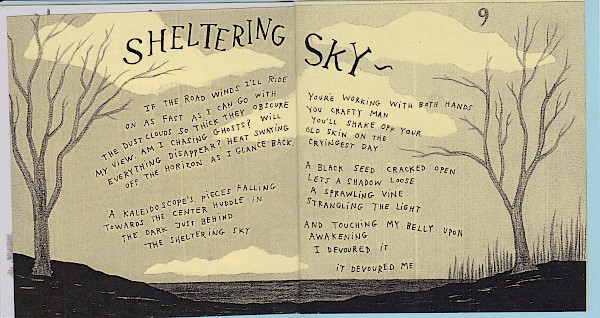 SHELTERING SKY~
9
IF THE ROAD WINDS I'LL RIDE
ON AS FAST AS I CAN GO WITH
THE DUST CLOUDS SO THICK THEY OBSCURE
MY VIEW. AM I CHASING GHOSTS? WILL
EVERYTHING DISAPPEAR? HEAT SWAYING
OFF THE HORIZON AS I GLANCE BACK.
A KALEIDOSCOPE'S PIECES FALLING
TOWARDS THE CENTER HUDDLE IN
THE DARK JUST BEHIND
THE SHELTERING SKY
YOU'RE WORKING WITH BOTH HANDS
YOU CRAFTY MAN
YOU'LL SHAKE OFF YOUR
OLD SKIN ON THE
CRYINGEST DAY
A BLACK SEED CRACKED OPEN
LETS A SHADOW LOOSE
A SPRAWLING VINE
STRANGLING THE LIGHT
AND TOUCHING MY BELLY UPON
AWAKENING
I DEVOURED IT
IT DEVOURED ME